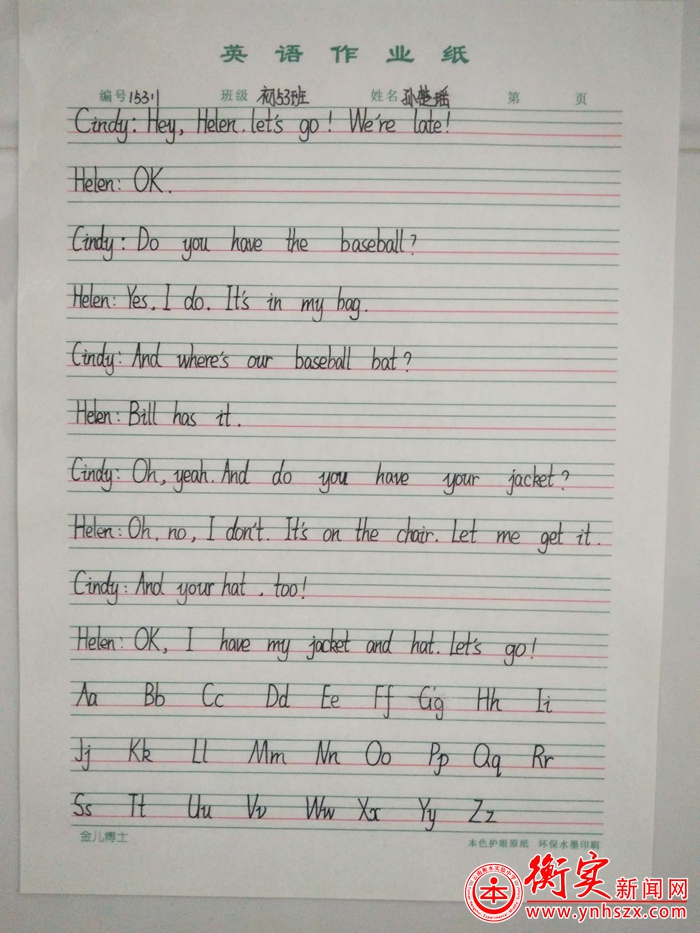 英语作业纸
编号 15311 班级 初53班 姓名 孙楚瑶 第 页
Cindy: Hey, Helen. let's go! We're late!
Helen: OK.
Cindy: Do you have the baseball?
Helen: Yes. I do. It's in my bag.
Cindy: And where's our baseball bat?
Helen: Bill has it.
Cindy: Oh, yeah. And do you have your jacket?
Helen: Oh. no, I don't. It's on the chair. Let me get it.
Cindy: And your hat . too!
Helen: OK, I have my jacket and hat. Let's go!
Aa Bb Cc Dd Ee Ff Gg Hh Ii
Jj Kk Ll Mm Nn Oo Pp Qq Rr
Ss Tt Uu Vv Ww Xx Yy Zz
金儿博士 本色护眼原纸 环保水墨印刷
衡实新闻网
www.ynhszx.com